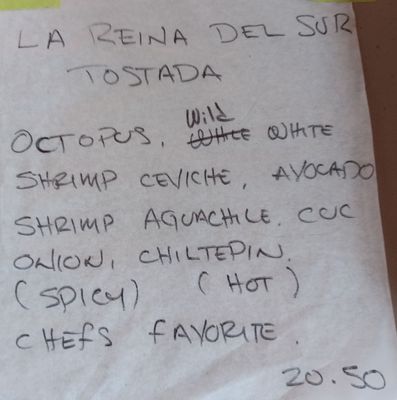 LA REINA DEL SUR
TOSTADA
OCTOPUS, Wild WHITE
SHRIMP CEVICHE, AVOCADO
SHRIMP AGUACHILE. CUC
ONION, CHILTEPIN.
(SPICY) (HOT)
CHEFS FAVORITE.
20.50